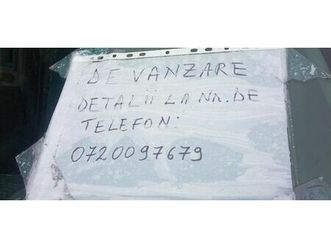 DE VANZARE
DETALII LA NR. DE
TELEFON:
0720097679